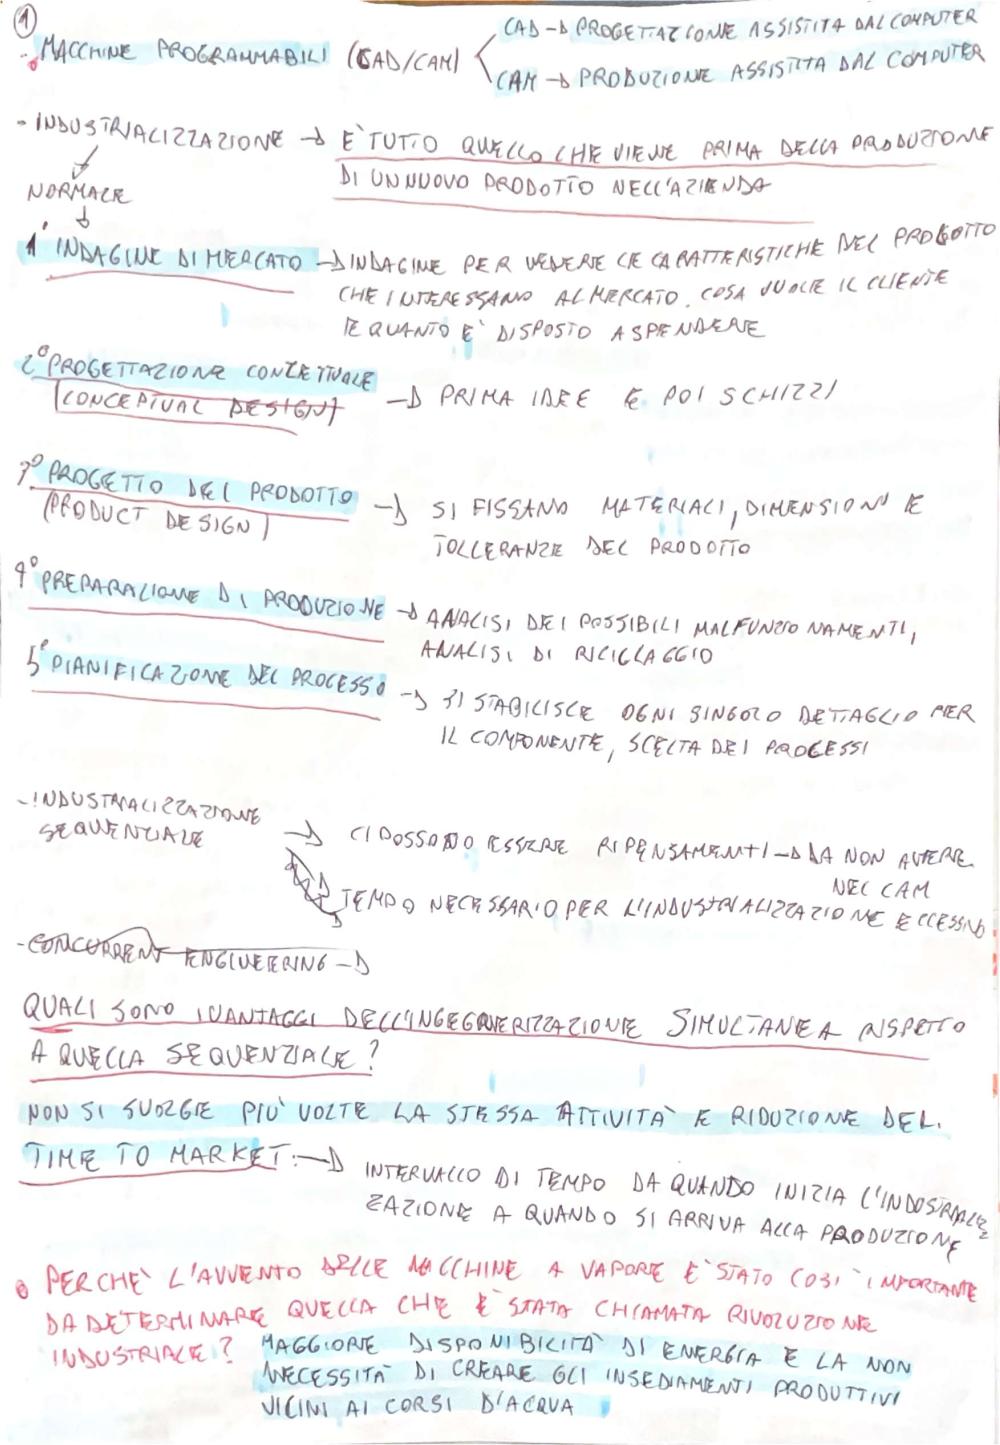 1
- MACCHINE PROGRAMMABILI (CAD/CAM)
CAD → PROGETTAZIONE ASSISTITA DAL COMPUTER
CAM → PRODUZIONE ASSISTITA DAL COMPUTER
- INDUSTRIALIZZAZIONE → E' TUTTO QUELLO CHE VIENE PRIMA DELLA PRODUZIONE
DI UN NUOVO PRODOTTO NELL'AZIENDA
NORMALE
1° INDAGINE DI MERCATO → INDAGINE PER VEDERE LE CARATTERISTICHE DEL PRODOTTO
CHE INTERESSANO AL MERCATO. COSA VUOLE IL CLIENTE
E QUANTO E' DISPOSTO A SPENDERE
2° PROGETTAZIONE CONCETTUALE
(CONCEPTUAL DESIGN) → PRIMA IDEE E POI SCHIZZI
3° PROGETTO DEL PRODOTTO
(PRODUCT DESIGN) → SI FISSANO MATERIALI, DIMENSIONI E
TOLLERANZE DEL PRODOTTO
4° PREPARAZIONE DI PRODUZIONE → ANALISI DEI POSSIBILI MALFUNZIONAMENTI,
ANALISI DI RICICLAGGIO
5° PIANIFICAZIONE DEL PROCESSO → SI STABILISCE OGNI SINGOLO DETTAGLIO PER
IL COMPONENTE, SCELTA DEI PROCESSI
- INDUSTRIALIZZAZIONE
SEQUENZIALE → CI POSSONO ESSERE RIPENSAMENTI → DA NON AVERE
NEL CAM
TEMPO NECESSARIO PER L'INDUSTRIALIZZAZIONE ECCESSIVO
- CONCURRENT ENGINEERING →
QUALI SONO I VANTAGGI DELL'INGEGNERIZZAZIONE SIMULTANEA RISPETTO
A QUELLA SEQUENZIALE?
NON SI SVOLGE PIU' VOLTE LA STESSA ATTIVITA' E RIDUZIONE DEL
TIME TO MARKET: → INTERVALLO DI TEMPO DA QUANDO INIZIA L'INDUSTRIALIZ
ZAZIONE A QUANDO SI ARRIVA ALLA PRODUZIONE
• PERCHE' L'AVVENTO DELLE MACCHINE A VAPORE E' STATO COSI' IMPORTANTE
DA DETERMINARE QUELLA CHE E' STATA CHIAMATA RIVOLUZIONE
INDUSTRIALE? MAGGIORE DISPONIBILITA' DI ENERGIA E LA NON
NECESSITA' DI CREARE GLI INSEDIAMENTI PRODUTTIVI
VICINI AI CORSI D'ACQUA